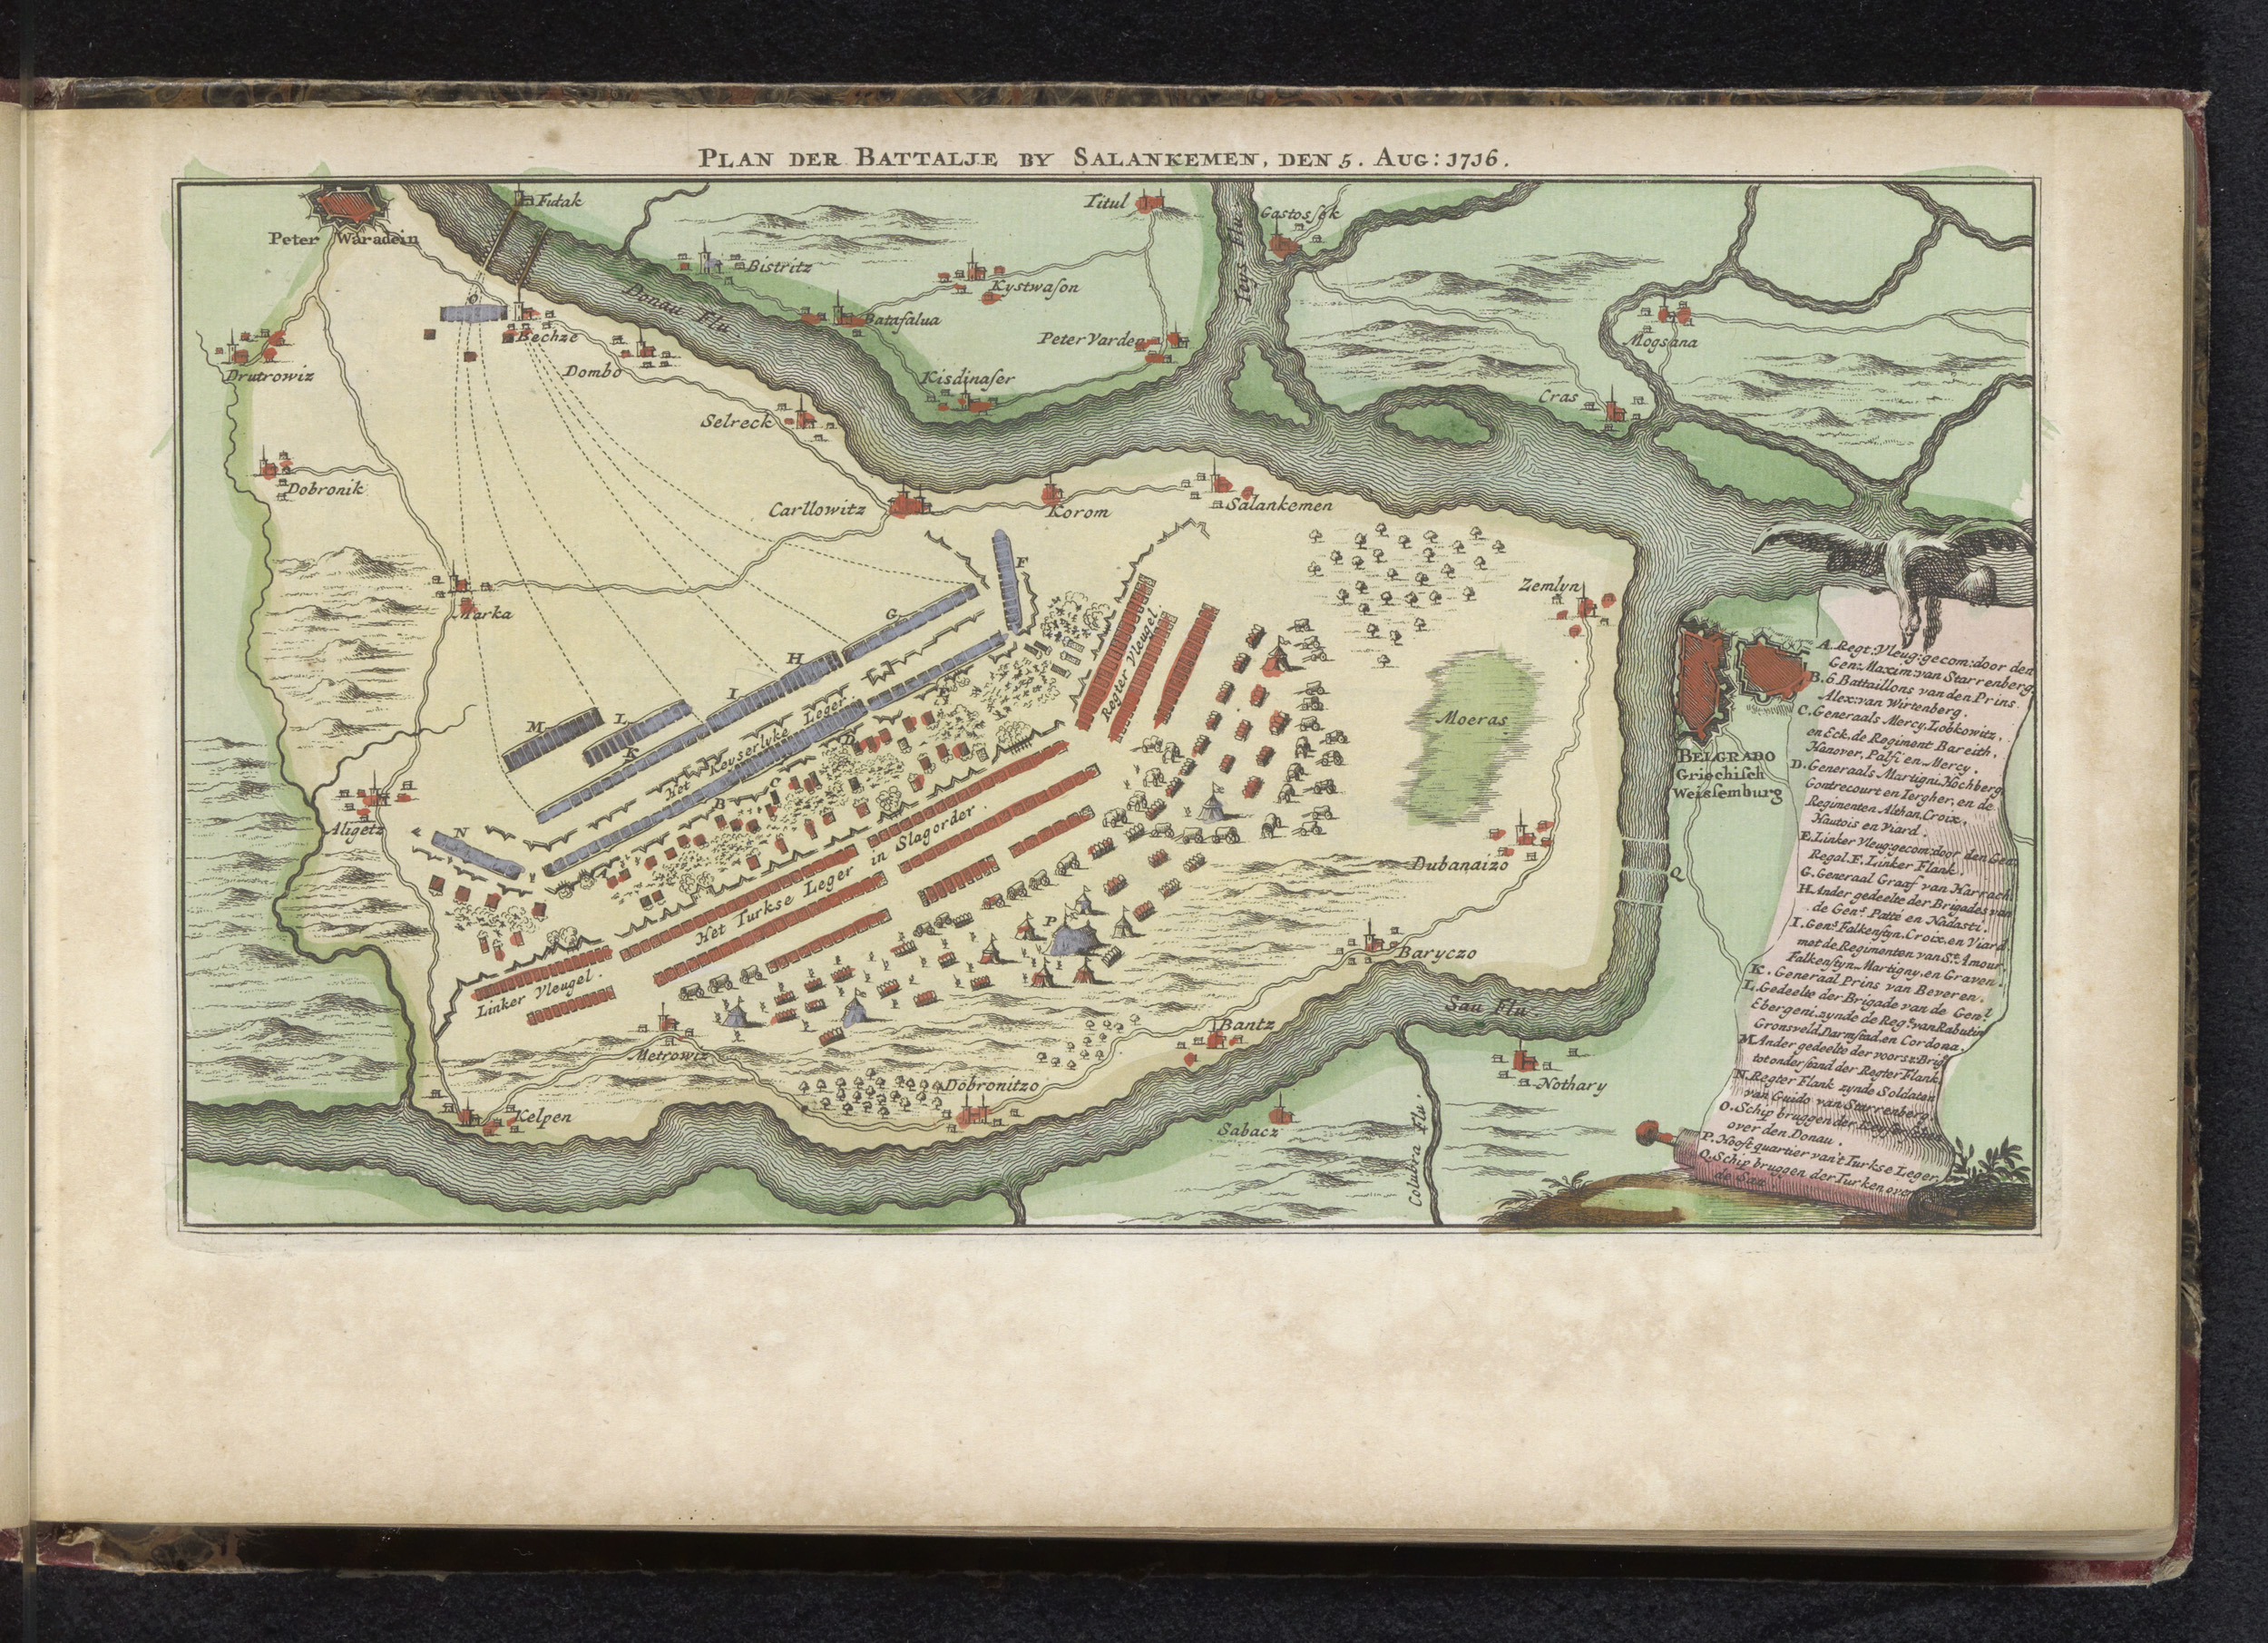 PLAN DER BATTALJE BY SALANKEMEN, DEN 5. AUG: 1716.
Peter Waradein
Futak
Titul
Gastosſek
Teys Flu
Bistritz
Kystwaſon
Donau Flu
Bataſalua
Bechze
Dombo
Peter Varden
Mogsana
Drutrowiz
Kisdinaſer
Cras
Selreck
Dobronik
Carllowitz
Korom
Salankemen
Marka
Zemlyn
O
F
G
H
I
L
M
K
E
D
C
B
A
N
P
Q
Het Keyserlyke Leger
Regter Vleugel
Moeras
BELGRADO
Griechiſch
Weisſemburg
Aligetz
Het Turkse Leger in Slagorder.
Dubanaizo
Linker Vleugel.
Baryczo
Sau Flu.
Metrowiz
Bantz
Dobronitzo
Nothary
Kelpen
Sabacz
Colubra Flu.
A. Regt: Vleug: gecom: door den
Gen: Maxim: van Starrenberg.
B. 6 Battaillons van den Prins
Alex: van Wirtenberg.
C. Generaals Mercy, Lobkowitz,
en Eck. de Regiment Bareith,
Hanover, Palfi en Mercy.
D. Generaals Martigni, Hochberg,
Gontrecourt en Jergher, en de
Regimenten Althan, Croix,
Hautois en Viard.
E. Linker Vleug: gecom: door den Gen:
Regal. F. Linker Flank.
G. Generaal Graaf van Harrach.
H. Ander gedeelte der Brigades van
de Gen.s Patté en Nadasti.
I. Gen.s Falkenſtyn, Croix, en Viard
met de Regimenten van S.t Amour,
Falkenſtyn, Martigny, en Graven.
K. Generaal Prins van Beveren.
L. Gedeelte der Brigade van de Gen.l
Ebergeni, zynde de Reg.t van Rabutin
Gronsveld, Darmſtad, en Cordona.
M. Ander gedeelte der voorsz: Brig:
tot onderſtand der Regter Flank.
N. Regter Flank zynde Soldaten
van Guido van Starrenberg.
O. Schip bruggen der
over den Donau.
P. Hooft quartier van't Turkse Leger.
Q. Schip bruggen der Turken over
de Sau.